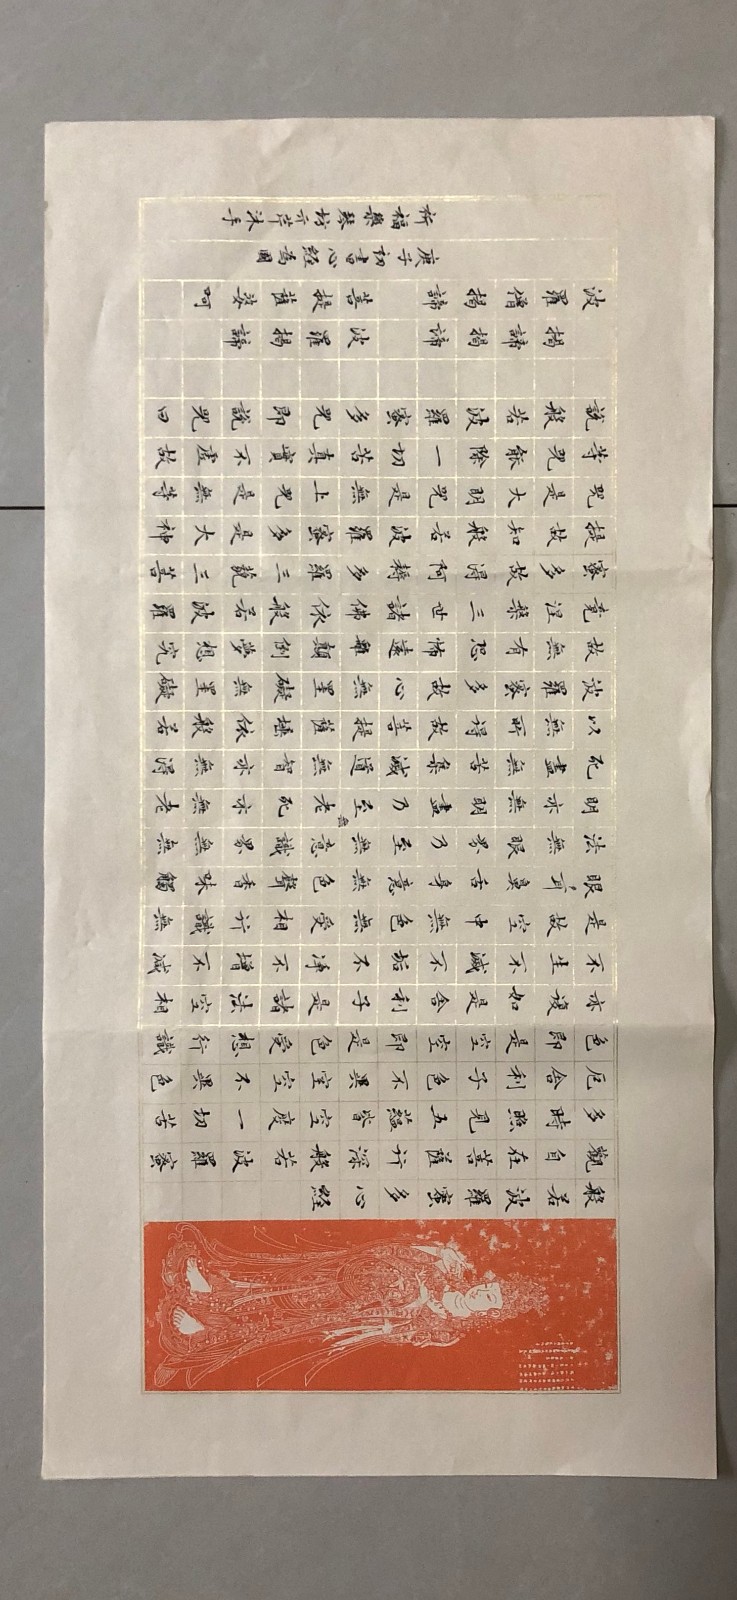 般若波羅蜜多心經
觀自在菩薩行深般若波羅蜜
多時照見五蘊皆空度一切苦
厄舍利子色不異空空不異色
色即是空空即是色受想行識
亦復如是舍利子是諸法空相
不生不滅不垢不淨不增不減
是故空中無色無受相行識無
眼耳鼻舌身意無色聲香味觸
法無眼界乃至無意識界無無
明亦無明盡乃至無老死亦無老
死盡無苦集滅道無智亦無得
以無所得故菩提薩埵依般若
波羅蜜多故心無罣礙無罣礙
故無有恐怖遠離顛倒夢想究
竟涅槃三世諸佛依般若波羅
蜜多故得阿耨多羅三藐三菩
提故知般若波羅蜜多是大神
咒是大明咒是無上咒是無等
等咒能除一切苦真實不虛故
說般若波羅蜜多咒即說咒曰
揭諦揭諦 波羅揭諦
波羅僧揭諦 菩提薩婆呵
庚子初書心經為國
祈福琴坊亦芹沐手